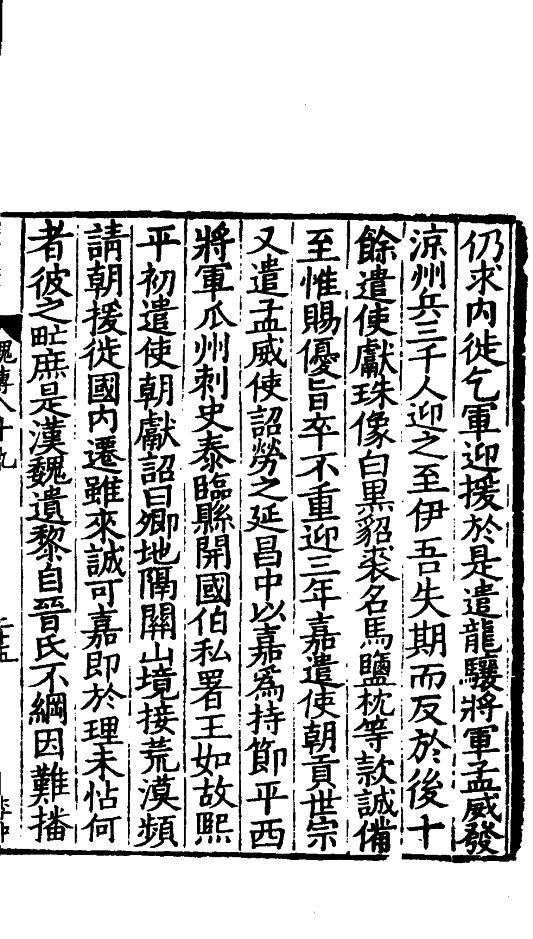 仍求内徙乞軍迎援於是遣龍驤將軍孟威發
涼州兵三千人迎之至伊吾失期而反於後十
餘遣使獻珠像白黒貂裘名馬鹽枕等款誠備
至惟賜優旨卒不重迎三年嘉遣使朝貢世宗
又遣孟威使詔勞之延昌中以嘉爲持節平西
將軍瓜州刺史泰臨縣開國伯私署王如故熙
平初遣使朝獻詔曰卿地隔關山境接荒漠頻
請朝援徙國内遷雖來誠可嘉即於理未怗何
者彼之甿庶是漢魏遺黎自晉氏不綱因難播
傳八十九